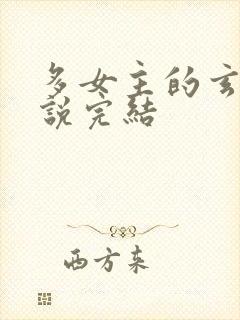 多女主的玄
說完結
西方来